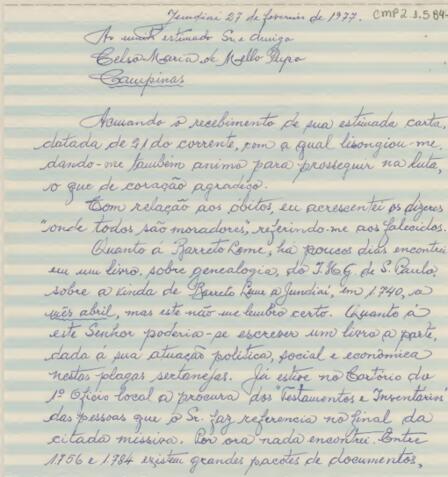 Jundiaí 27 de fevereiro de 1977. CMP2.1.5.84-
Ao mui estimado Sr. e amigo
Celso Maria de Mello Pupo
Campinas
Acusando o recebimento de sua estimada carta,
datada de 21 do corrente, com a qual lisongiou-me,
dando-me também animo para prosseguir na luta,
o que de coração agradeço.
Com relação aos óbitos, eu acrescentei os dizeres
"onde todos são moradores", referindo-me aos falecidos.
Quanto á Barreto Leme, há poucos dias encontrei
em um livro, sobre genealogia, do I.H.G. de S. Paulo,
sobre a vinda de Barreto Leme a Jundiaí, em 1.740, a
mês abril, mas este não me lembro certo. Quanto á
este Senhor poderia-se escrever um livro a parte,
dada á sua atuação politica, social e econômica
nestas plagas sertanejas. Já estive no Cartório do
1º Oficio local a procura dos "Testamentos e Inventários"
das pessoas que o Sr. faz referencia no final da
citada missiva. Por ora nada encontrei. Entre
1756 e 1.784 existem grandes pacotes de documentos,